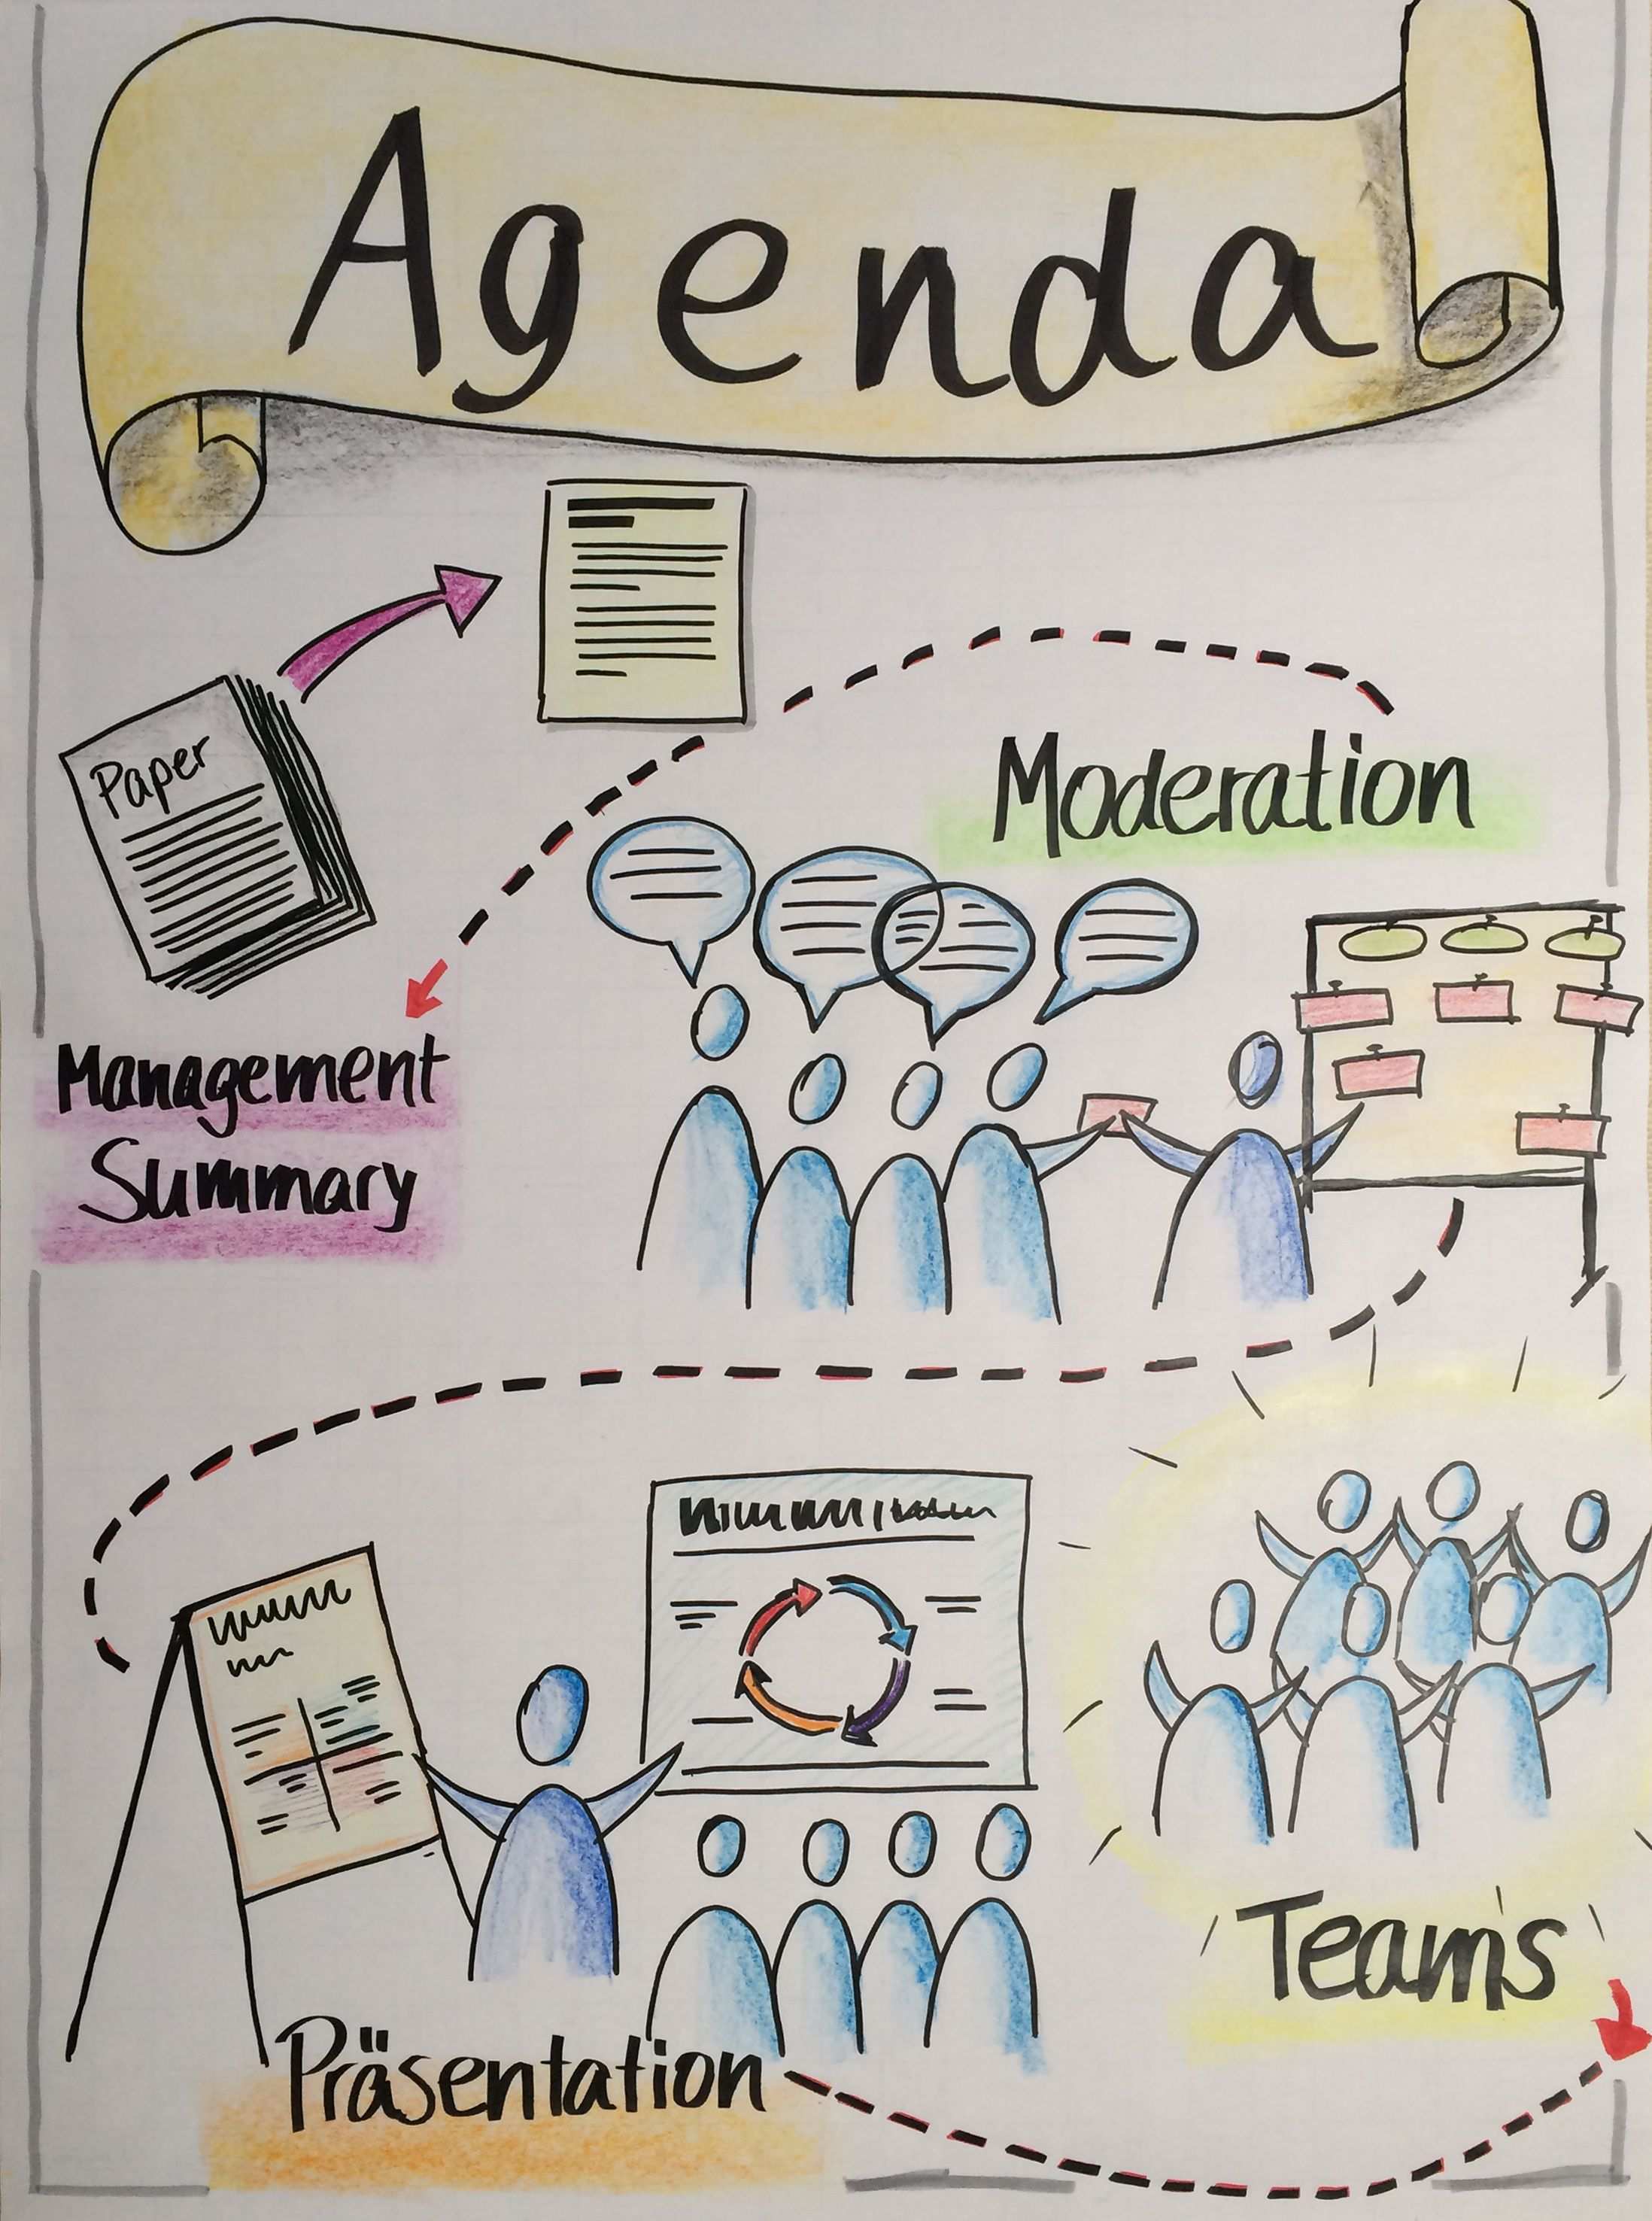 Agenda
Paper
Moderation
Management
Summary
Teams
Präsentation